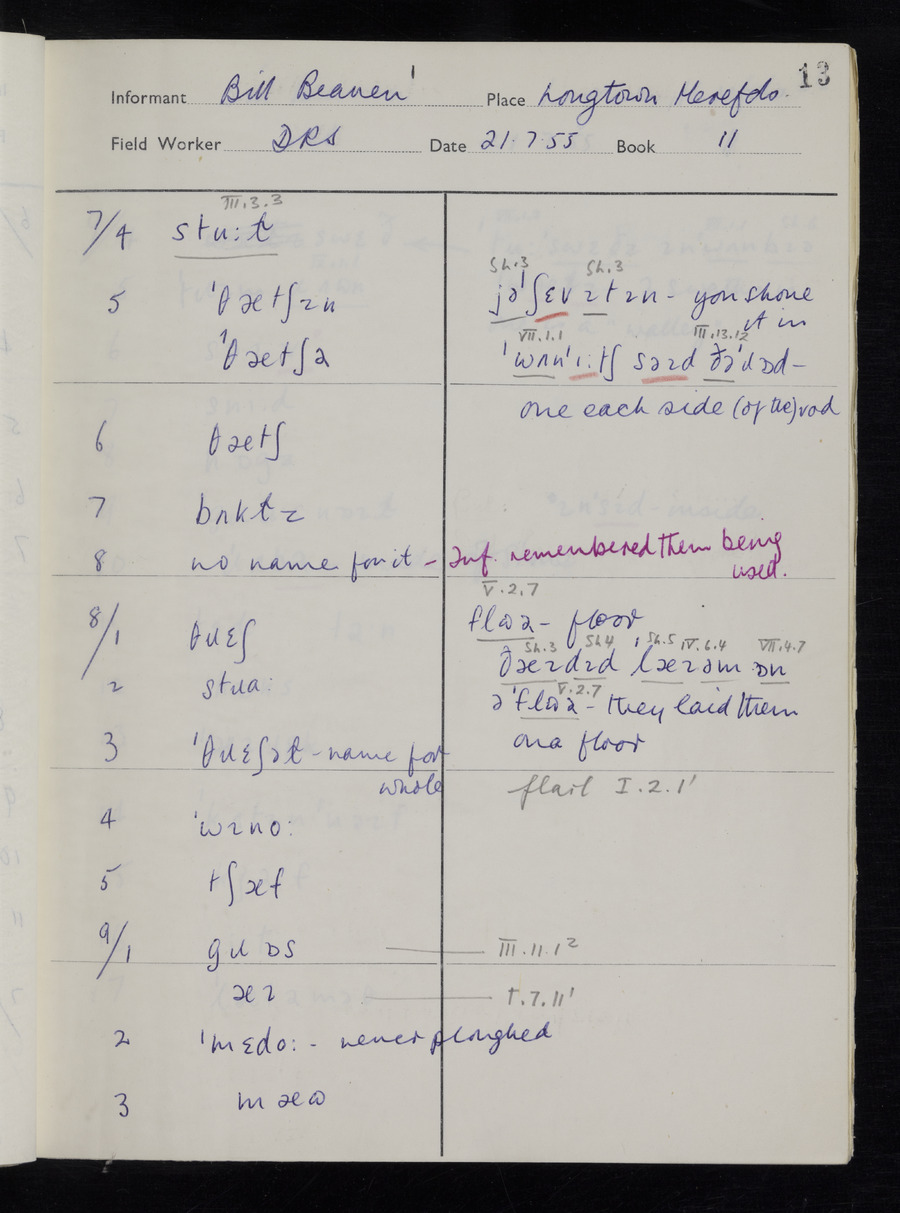 13
Informant Bill Beaven' Place Longtown Herefds.
Field Worker DRS Date 21.7.55 Book 11
III.3.3
7/4 stɹu:t
Sh.3 Sh.3
5 'θætʃɪn jə'ʃɛv ɪt ɪn - you shove
it in
VII.1.1 III.13.12
'θætʃə 'wʌn'ɪ:tʃ səɪd ðə'ɹɒd -
one each side (of the) rod
6 θætʃ
7 bʌktɪ
8 no name for it - Inf. remembered them being
used.
V.2.7
8/1 θɹɛʃ flɷə - floor
Sh.3 Sh4 Sh.5 IV.6.4 VII.4.7
ðæɪdɪd læɪəm ɒn
2 stɹɑ: V.2.7
ə'flɷə - they laid them
3 'θɹɛʃət - name for on a floor
whole
flail I.2.1'
4 'wɪno:
5 tʃæf
9/1 gɹɒs III.11.1²
æɪ
2 'mɛdo: - never ploughed
3 mæɷ